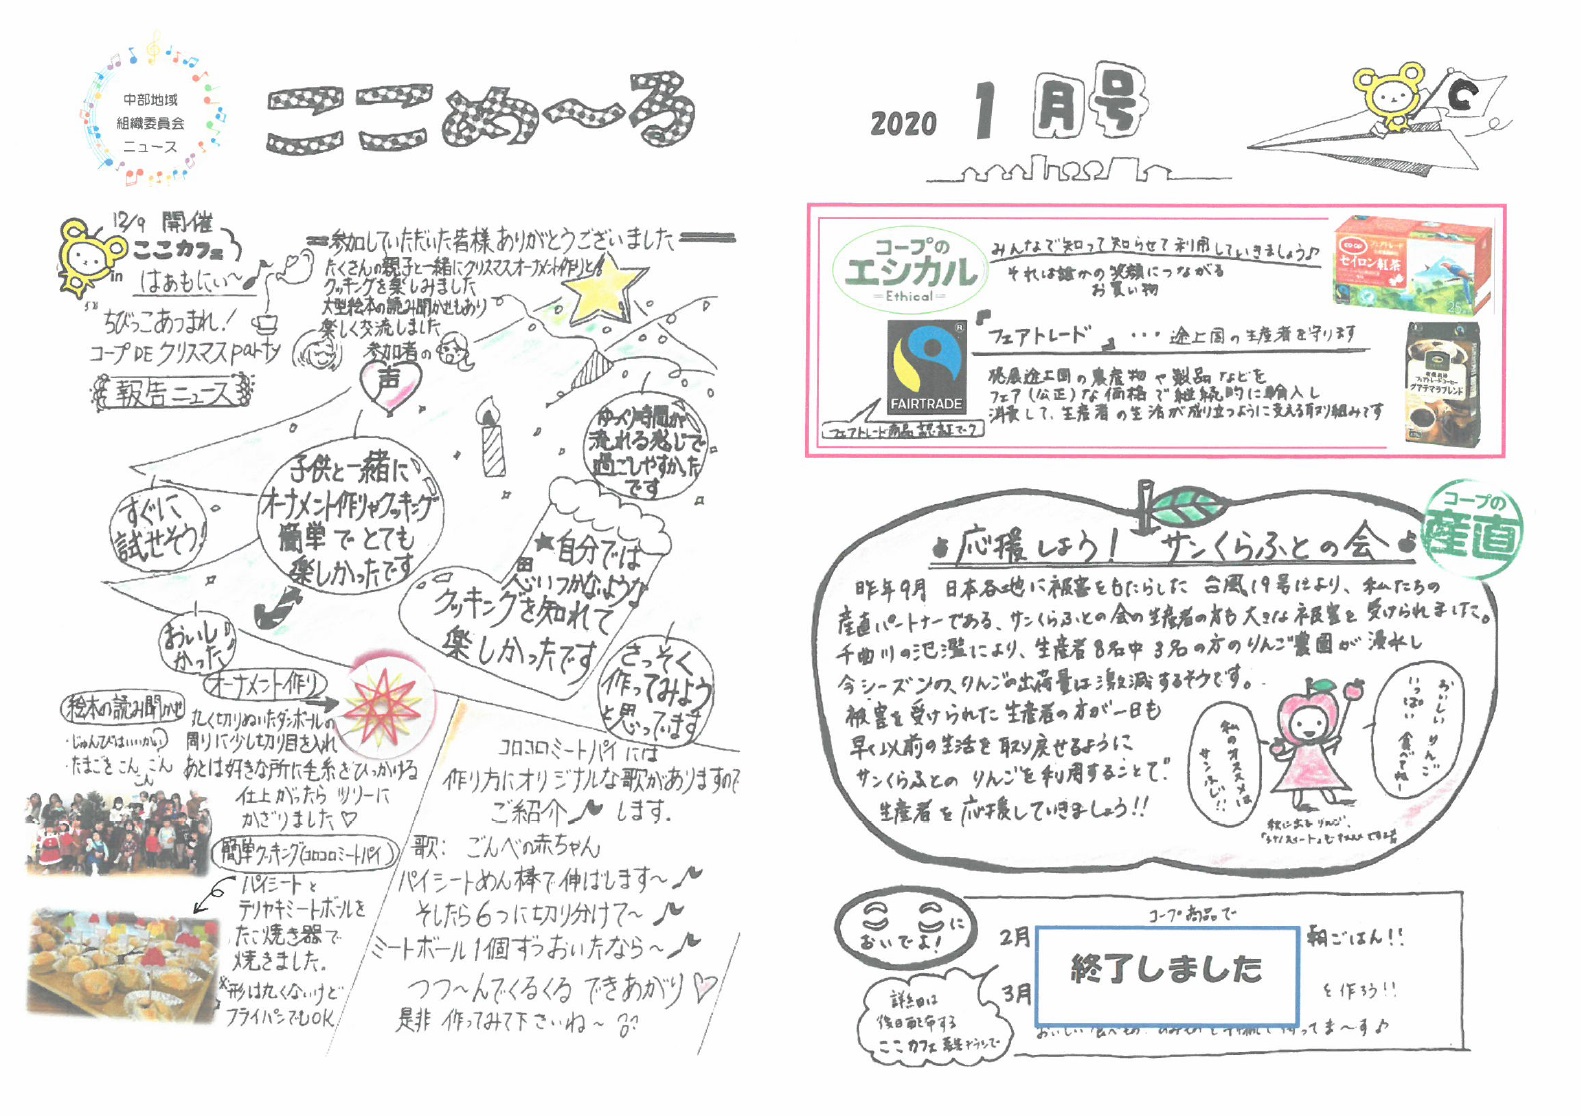 中部地域
組織委員会
ニュース
ここめ～る
2020 1月号
12/9 開催
ここカフェ
in
はぁもにぃ～
ちびっこあつまれ!
コープDE クリスマスparty
報告ニュース
参加していただいた皆様ありがとうございました
たくさんの親子と一緒にクリスマスオーナメント作りと
クッキングを楽しみました
大型絵本の読み聞かせもあり
楽しく交流しました
参加者の
声
ゆっくり時間が
流れる感じで
過ごしやすかった
です
子供と一緒に
オーナメント作りやクッキング
簡単でとても
楽しかったです
すぐに
試せそう!
★自分では
思いつかないような
クッキングを知れて
楽しかったです
おいし
かった♪
さっそく
作ってみよう
と思ってます
オーナメント作り
丸く切りぬいたダンボールの
周りに少し切り目を入れ
あとは好きな所に毛糸をひっかける
仕上がったら ツリーに
かざりました♡
絵本の読み聞かせ
・じゅんびはいいかい
・たまごをこんこんこん
簡単クッキング(コロコロミートパイ)
パイシートと
テリヤキミートボールを
たこ焼き器で
焼きました。
※形は丸くないけど
フライパンでもOK
コロコロミートパイには
作り方にオリジナルな歌がありますので
ご紹介♪します.
歌: ごんべの赤ちゃん
パイシートめん棒で伸ばします～♪
そしたら6つに切り分けて～♪
ミートボール1個ずつおいたなら～♪
つつ～んでくるくる できあがり♡
是非 作ってみて下さいね～
コープの
エシカル
=Ethical=
みんなで知って知らせて利用していきましょう♪
それは誰かの笑顔につながる
お買い物
CO・OP
フェアトレード
セイロン紅茶
『フェアトレード』・・・途上国の生産者を守ります
発展途上国の農産物や製品などを
フェア(公正)な価格で継続的に輸入し
消費して、生産者の生活が成り立つように支える取り組みです
FAIRTRADE
フェアトレード商品 認証マーク
フェアトレードコーヒー
グアテマラブレンド
コープの
産直
応援しよう! サンくらふとの会
昨年9月 日本各地に被害をもたらした 台風19号により、私たちの
産直パートナーである、サンくらふとの会の生産者の方も大きな被害を受けられました。
千曲川の氾濫により、生産者8名中3名の方のりんご農園が浸水し
今シーズンの、りんごの出荷量は激減するそうです。
被害を受けられた生産者の方が一日も
早く以前の生活を取り戻せるように
サンくらふとの りんごを利用することで
生産者を応援していきましょう!!
おいしいりんご
いっぱい食べてね
私のオススメは
サンふじ!!
においでよ!
コープ商品で
2月
朝ごはん!!
終了しました
3月
を作ろう!!
詳細は
後日配布する
ここカフェ募集チラシで